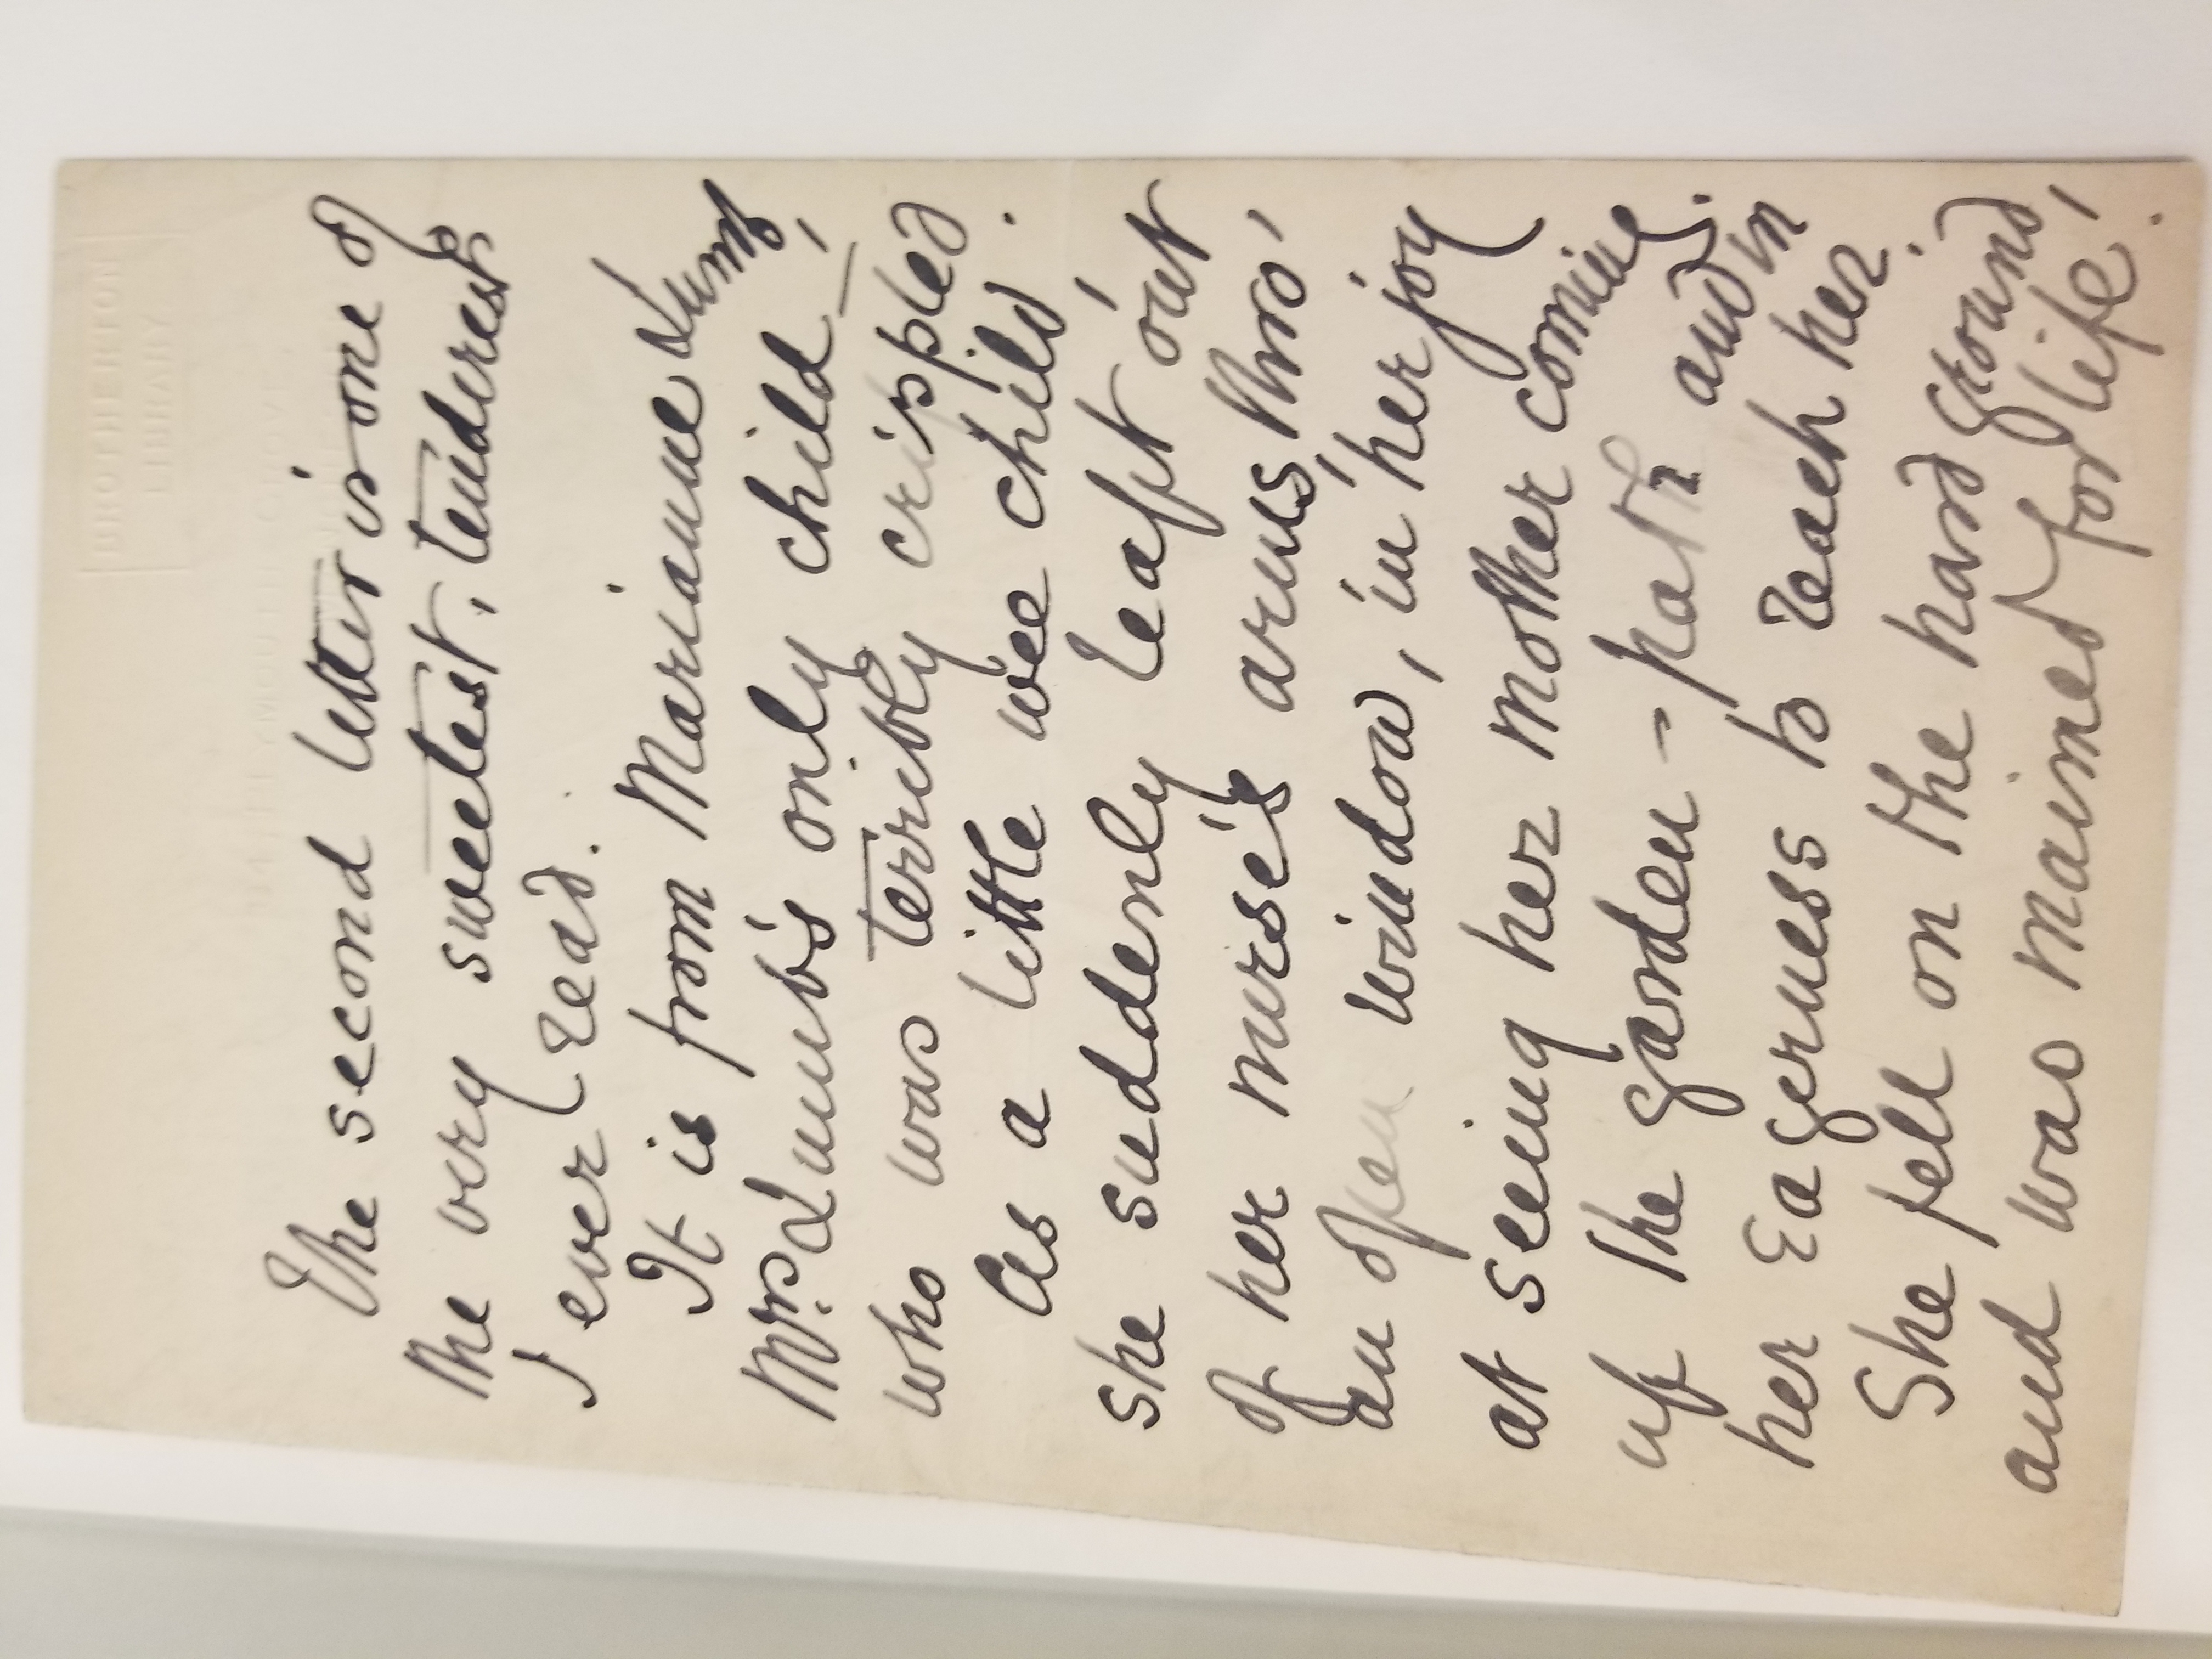 BROTHERTON
LIBRARY
84, PLYMOUTH GROVE,
MANCHESTER.
The second letter is one of
the very sweetest, tenderest
I ever read.
It is from Marianne Lumb,
Mrs. Lumb's only child –
who was terribly crippled.
As a little wee child,
she suddenly leapt out
of her nurse's arms, thro'
an open window, in her joy
at seeing her mother coming
up the garden-path and in
her eagerness to reach her.
She fell on the hard ground,
and was maimed for life!